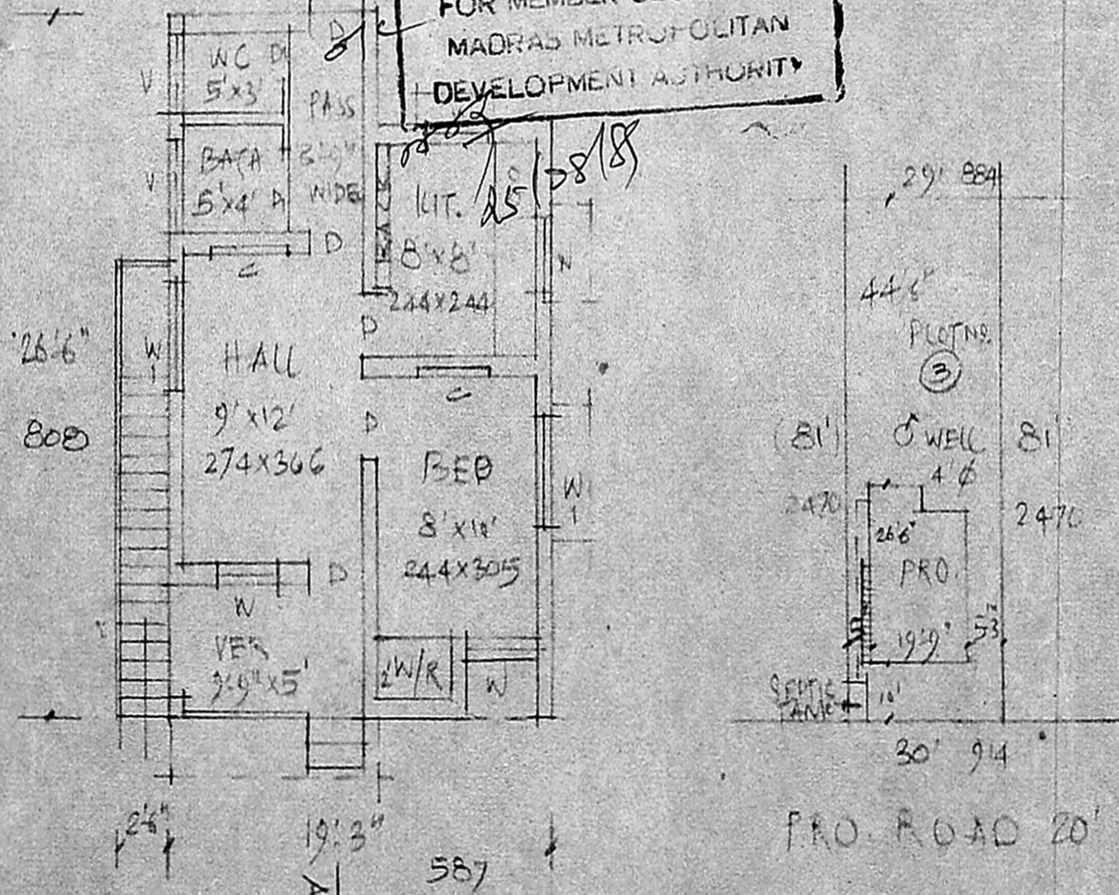 FOR MEMBER
MADRAS METROPOLITAN
DEVELOPMENT AUTHORITY
WC
5'x3'
D
D
V
PASS
3'-9"
WIDE
V
BATH
5'x4'
D
D
C
RACK
KIT.
8'x8'
244x244
W
D
26'-6"
808
W1
HALL
9'x12'
274x366
C
D
BED
8'x10'
244x305
W1
W
D
VER
9'-9"x5'
2'W/R
W
2'6"
19'-3"
587
A
29' 884
44'6"
PLOT NO.
3
(81')
2470
WELL
4'Ø
81'
2470
26'6"
PRO.
19'9"
5'3"
SEPTIC
TANK
10'
30' 914
PRO. ROAD 20'